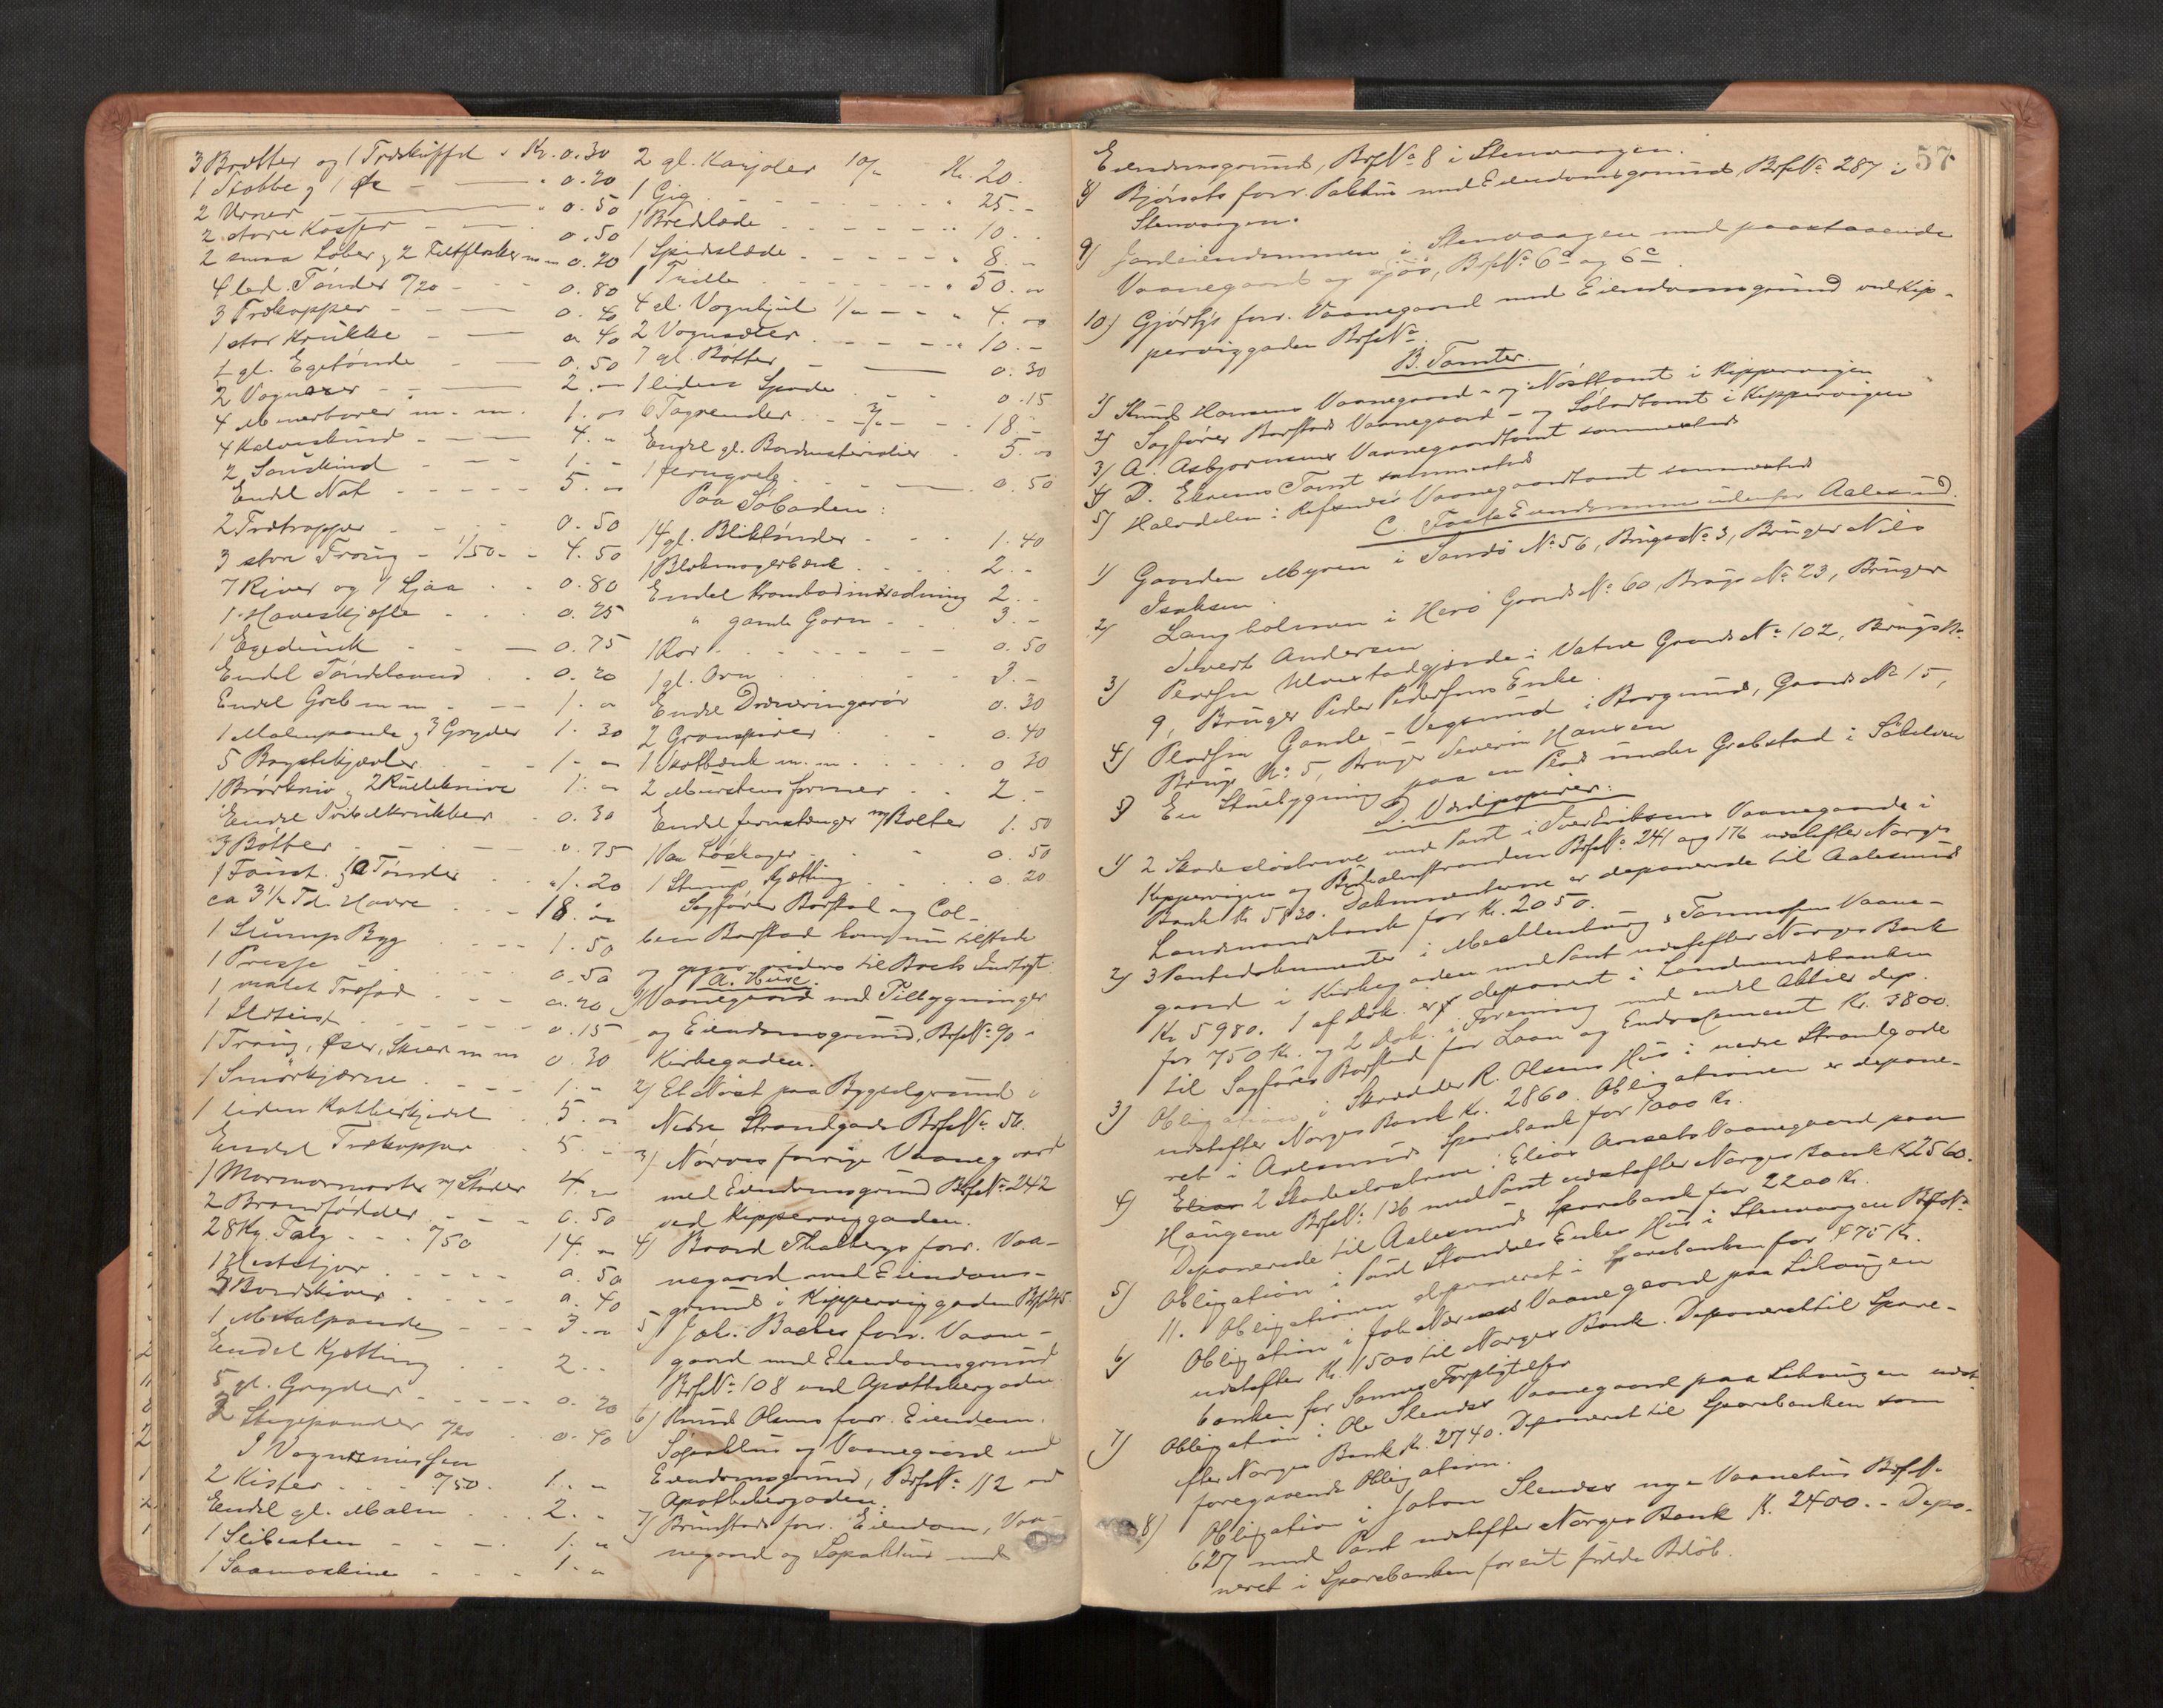 3 Brætter og 1 Træskuffel " Kr. 0.30
1 Stabbe og 1 Øx - " 0.20
2 Urner - " 0.50
2 store Kasser - 0.50
2 smaa Løber og 2 Feltflasker m.m. 0.20
4 led. Tønder %20 - 0.80
3 Trækopper - 0.40
1 stor Krukke - 0.40
1 gl. Egetønde - 0.50
2 Vognaxer - 2. "
4 m.m. 1. "
4 Kalveskind - 4. "
2 Saueskind - 1. "
Endel Nøt - 5. "
2 Trætrapper - 0.50
3 store Traug - 1/50 - 4.50
7 River og 1 Ljaa - 0.80
1 Haveskjøfle - 0.25
1 Egedunk - 0.75
Endel Tøndebaand - 0.20
Endel Greb m m - 1. "
1 Malmpande og 3 Gryder 1.30
5 Bagstekjævler - 1. "
1 og 2 Rulleknive 1. "
Endel Krukker 0.30
3 Bøtter - 0.75
1 og 2 Tønder - 1.20
ca 3 1/2 Td. Havre - 18. "
1 Slump Byg - 1.50
1 Presse - 0.50
1 malet Træfad - 0.20
1 - 0.15
1 Traug, Øser, Skeer m m 0.30
1 Smørkjærne - 1. "
1 liden Kobberkjedel . 5. "
Endel Trækopper . 5. -
1 Marmormorter m/ Støder 4. "
2 Brandfødder - 0.50
28 Kg. Talg - %50 14. "
1 Hestetjor - 0.50
3 Bordskiver - 0.40
1 Metalpande - 3. "
Endel Kjætting . 2. -
5 gl. Gryder - 0.20
2 Stegepander %20 . 0.40
I Vognremissen
2 Kister . . %50. 1. "
Endel gl. Malm . 2. "
1 Slibesten - 1. "
1 Saamaskine - 1. "
2 gl. Karjoler 10/- Kr. 20.
1 Gig - " 25. -
1 Bredslæde - " 10. -
1 Spidsslæde - " 8. "
1 Trille - " 50. "
4 st. Vognhjul 1/- - " 4. "
2 Vogn - " 10. -
7 gl. Bøtter - 0.30
1 liden Spade - 0.15
6 Tagrender - 3/- - 18. -
Endel gl. Bordmaterialier . 5. "
1 Jerngreb - 0.50
Paa Søboden:
14 gl. Bliktønder - 1.40
1 Blokmagerbænk - 2. -
Endel Krambodindredning 2. -
" gamle Garn - 3. -
1 Ror - 0.50
1 gl. Ovn - 3. -
Endel Dræneringsrør 0.30
2 Granspirer - 0.40
1 Skotbænk m.m. - 0.20
2 Murstensformer - 2. -
Endel Jernstænger m/ Bolter 1.50
1 Par - 0.50
1 Stump Kjætting - 0.20
Sagfører Barstad og Col-
ben Barstad kom nu tilstede
og opgav videre til Boets Indtægt:
A. Huse.
1) Vaanegaard med Tilbygninger
og Eiendomsgrund, Brf.No. 90 i
Kirkegaden.
2) Et Nøst paa Bygselgrund i
Nedre Strandgade Brf.No. 56.
3) Nørves forrige Vaanegaard
med Eiendomsgrund Brf.No. 242
ved Kippervigsgaden.
4) Baard Thalbergs forr. Vaa-
negaard med Eiendoms-
grund i Kippervigsgaden Brf. 245
5) Joh. Baches forr. Vaane-
gaard med Eiendomsgrund
Brf.No. 108 ved Apothekergaden
6) Knud Olsens forr. Eiendom.
Søpakhus og Vaanegaard med
Eiendomsgrund, Brf.No. 112 ved
Apothekergaden.
7) Brunstads forr. Eiendom, Vaa-
negaard og Søpakhus med
57
Eiendomsgrund, Brf.No. 8 i Stenvaagen.
8) Bjørsets forr. Pakhus med Eiendomsgrund Brf.No. 287 i
Stenvaagen.
9) Jordeiendommen i Stenvaagen med paastaaende
Vaanegaard og Fjøs, Brf.No. 6a og 6c.
10) Gjørtz's forr. Vaanegaard med Eiendomsgrund ved Kip-
pervigsgaden Brf.No.
B. Tomter.
1) Knud Hansens Vaanegaard- og Nøsttomt i Kippervigen
2) Sagfører Barstads Vaanegaard- og Søbodtomt i Kippervigen
3) A. Asbjørnsens Vaanegaardtomt sammesteds
4) D. Ekrems Tomt sammesteds
5) Halvdelen i Vaanegaardtomt sammesteds
C. Faste Eiendomme udenfor Aalesund.
1) Gaarden Myren i Sandø No. 56, Brugs No. 3, Bruger Nils
Isaksen.
2) Langholmen i Herø Gaards No. 60, Brugs No. 23, Bruger
Sivert Andersen
3) Pladsen Ulvestadgjærde i Vatne Gaards No. 102, Brugs No.
9, Bruger Peder Pedersens Enke.
4) Pladsen Gamle-Vegsund i Borgund, Gaards No. 15,
Brugs No. 5, Bruger Severin Hansen
5) En Stuebygning paa en Plads under Grebstad i Søkelven
D. Værdipapirer:
1) 2 Skadesløsbreve med Pant i Iver Eriksens Vaanegaarde i
Kippervigen og Buholmstranden Brf.No. 241 og 176 udstefter Norges
Bank Kr. 5830. Dokumenterne er deponerede til Aalesunds
Landmandsbank for Kr. 2050.
2) 3 Pantedokumenter i Mecklenburg & Tønnesens Vaane-
gaard i Kirkegaden med Pant udstefter Norges Bank
Kr 5980. 1 af Dok. er deponert i Landmandsbanken
for 750 Kr. og 2 Dok. i Forening med endel Aktier dep.
til Sagfører Barstad for Laan og Endossement Kr. 3800.
3) Obligation i Skrædder R. Olsens Hus i nedre Strandgade
udstefter Norges Bank Kr. 2860. Obligationen er depone-
ret i Aalesunds Sparebank for 1000 Kr.
4) Elias 2 Skadesløsbreve i Elias Aarsets Vaanegaard paa
Haugene Brf.No. 136 med Pant udstefter Norges Bank Kr 2560.
Deponerede til Aalesunds Sparebank for 2200 Kr.
5) Obligation i Paul Standals Enkes Hus i Stenvaagen Brf.No.
11. Obligationen deponeret i Sparebanken for 475 Kr.
6) Obligation i Joh. Vaanegaard paa Lihaugen
udstefter Kr. 1500 til Norges Bank. Deponeret til Spare-
banken for Samme Forpligtelse
7) Obligation i Ole Slendes Vaanegaard paa Lihaugen udst-
efter Norges Bank Kr. 2740. Deponeret til Sparebanken som
foregaaende Obligation.
8) Obligation i Johan Slendes nye Vaanehus Brf.No.
627 med Pant udstefter Norges Bank Kr. 2400. - Depo-
neret i Sparebanken for sit fulde Beløb.